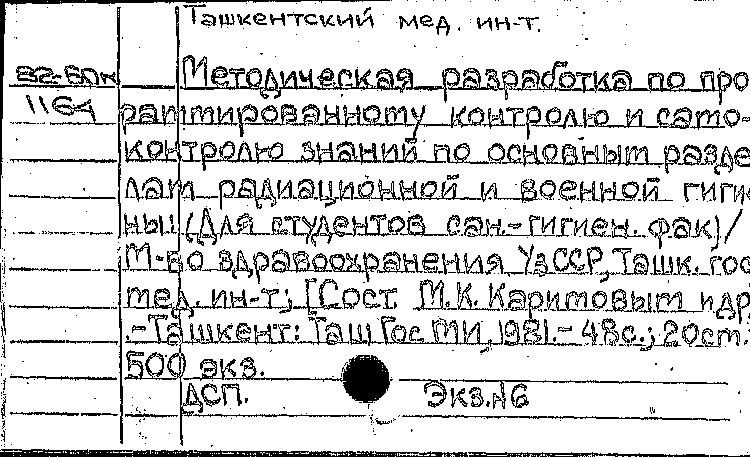 Ташкентский мед. ин-т.
82-60м
1164
Методическая разработка по про
раммированному контролю и само-
контролю знаний по основным разде
лам радиационной и военной гигие
ны (Для студентов сан-гигиен. фак)/
М-во здравоохранения УзССР, Ташк. гос
мед. ин-т; [Сост. М.К. Каримовым и др
.-Ташкент: ТашГосМИ, 1981.- 48с.; 20см.
500 экз.
ДСП. Экз.№6